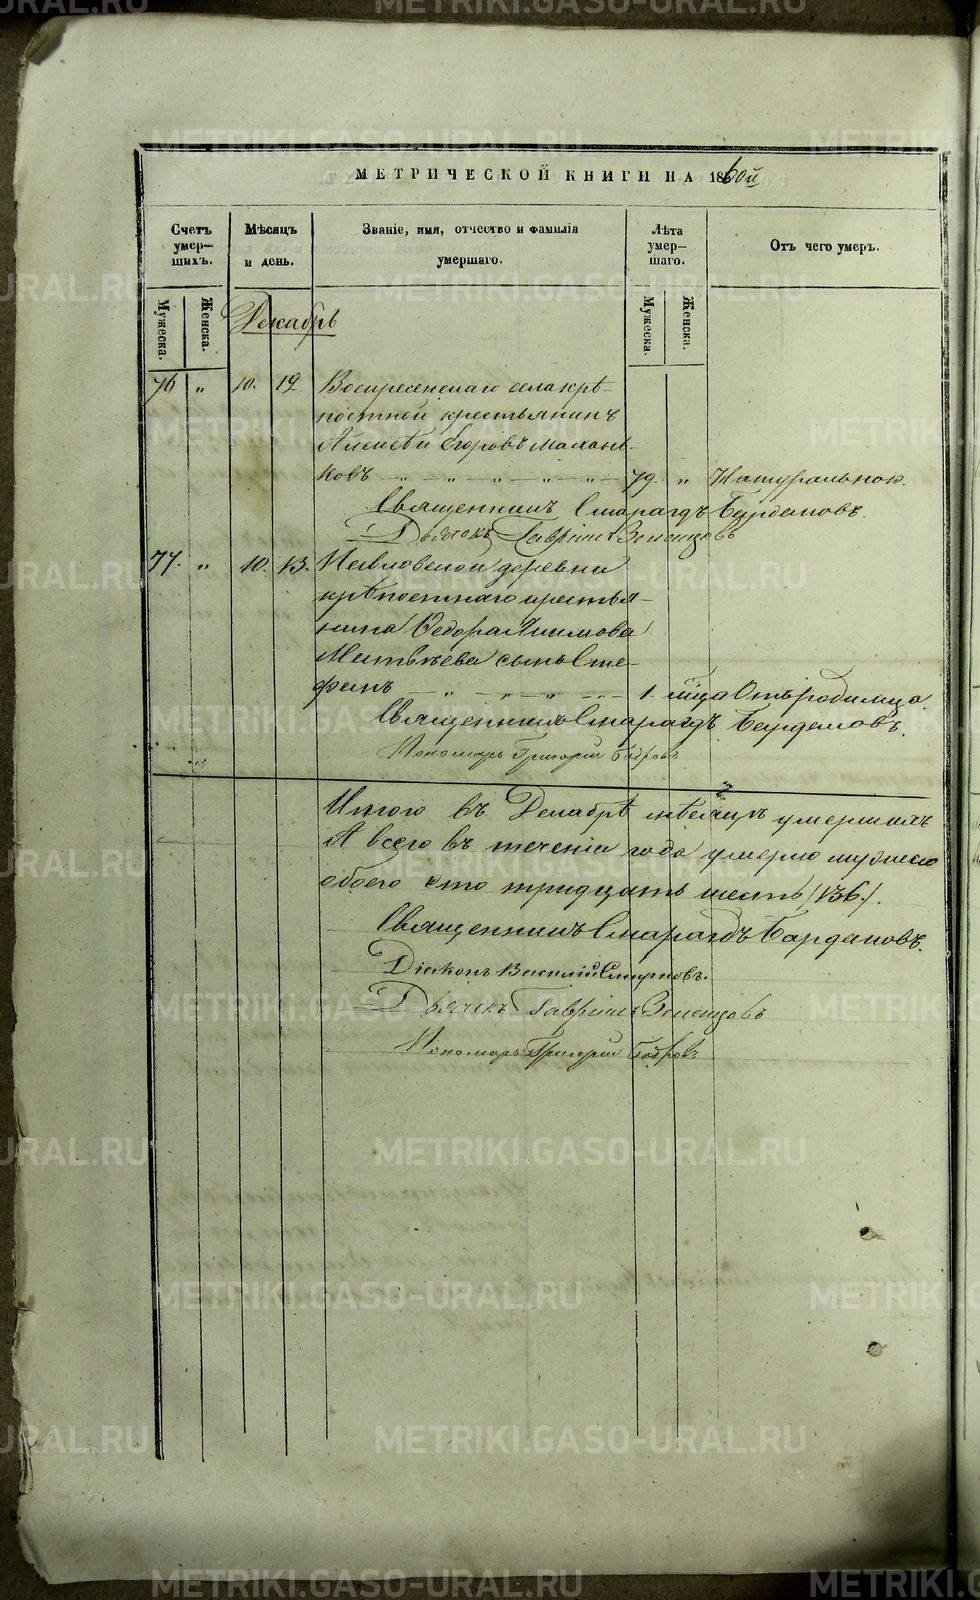 МЕТРИЧЕСКОЙ КНИГИ НА 1860й
Счетъ умер-шихъ.
Мѣсяцъ и день.
Званіе, имя, отчество и фамилія умершаго.
Лѣта умер-шаго.
Отъ чего умеръ.
Мужеска.
Женска.
Мужеска.
Женска.
Декабрь
76 „ 10. 12 Воскресенскаго села крѣ-
постной крестьянинъ
Алексѣй Егоровъ
ковъ — „ — „ — „ — „ — „ — 79. „ Натуральною.
Священникъ Смарагдъ Бардаковъ.
Дьячекъ Гавріилъ
77. „ 10. 13. Павловской деревни
крѣпостнаго крестья-
нина Ѳедора Акимова
Матвѣева сынъ Сте-
фанъ — „ — „ — „ — „ — 1. мѣца Отъ родимца.
Священникъ Смарагдъ Бардаковъ.
Пономарь Григорій Бобровъ
Итого въ Декабрѣ мѣсяцѣ умершихъ 2
А всего въ теченіи года умерло мужеска
обоего сто тридцать шесть (136).
Священникъ Смарагдъ Бардаковъ.
Діаконъ Василій Смирновъ.
Дьячекъ Гавріилъ
Пономарь Григорій Бобровъ
METRIKI.GASO-URAL.RU